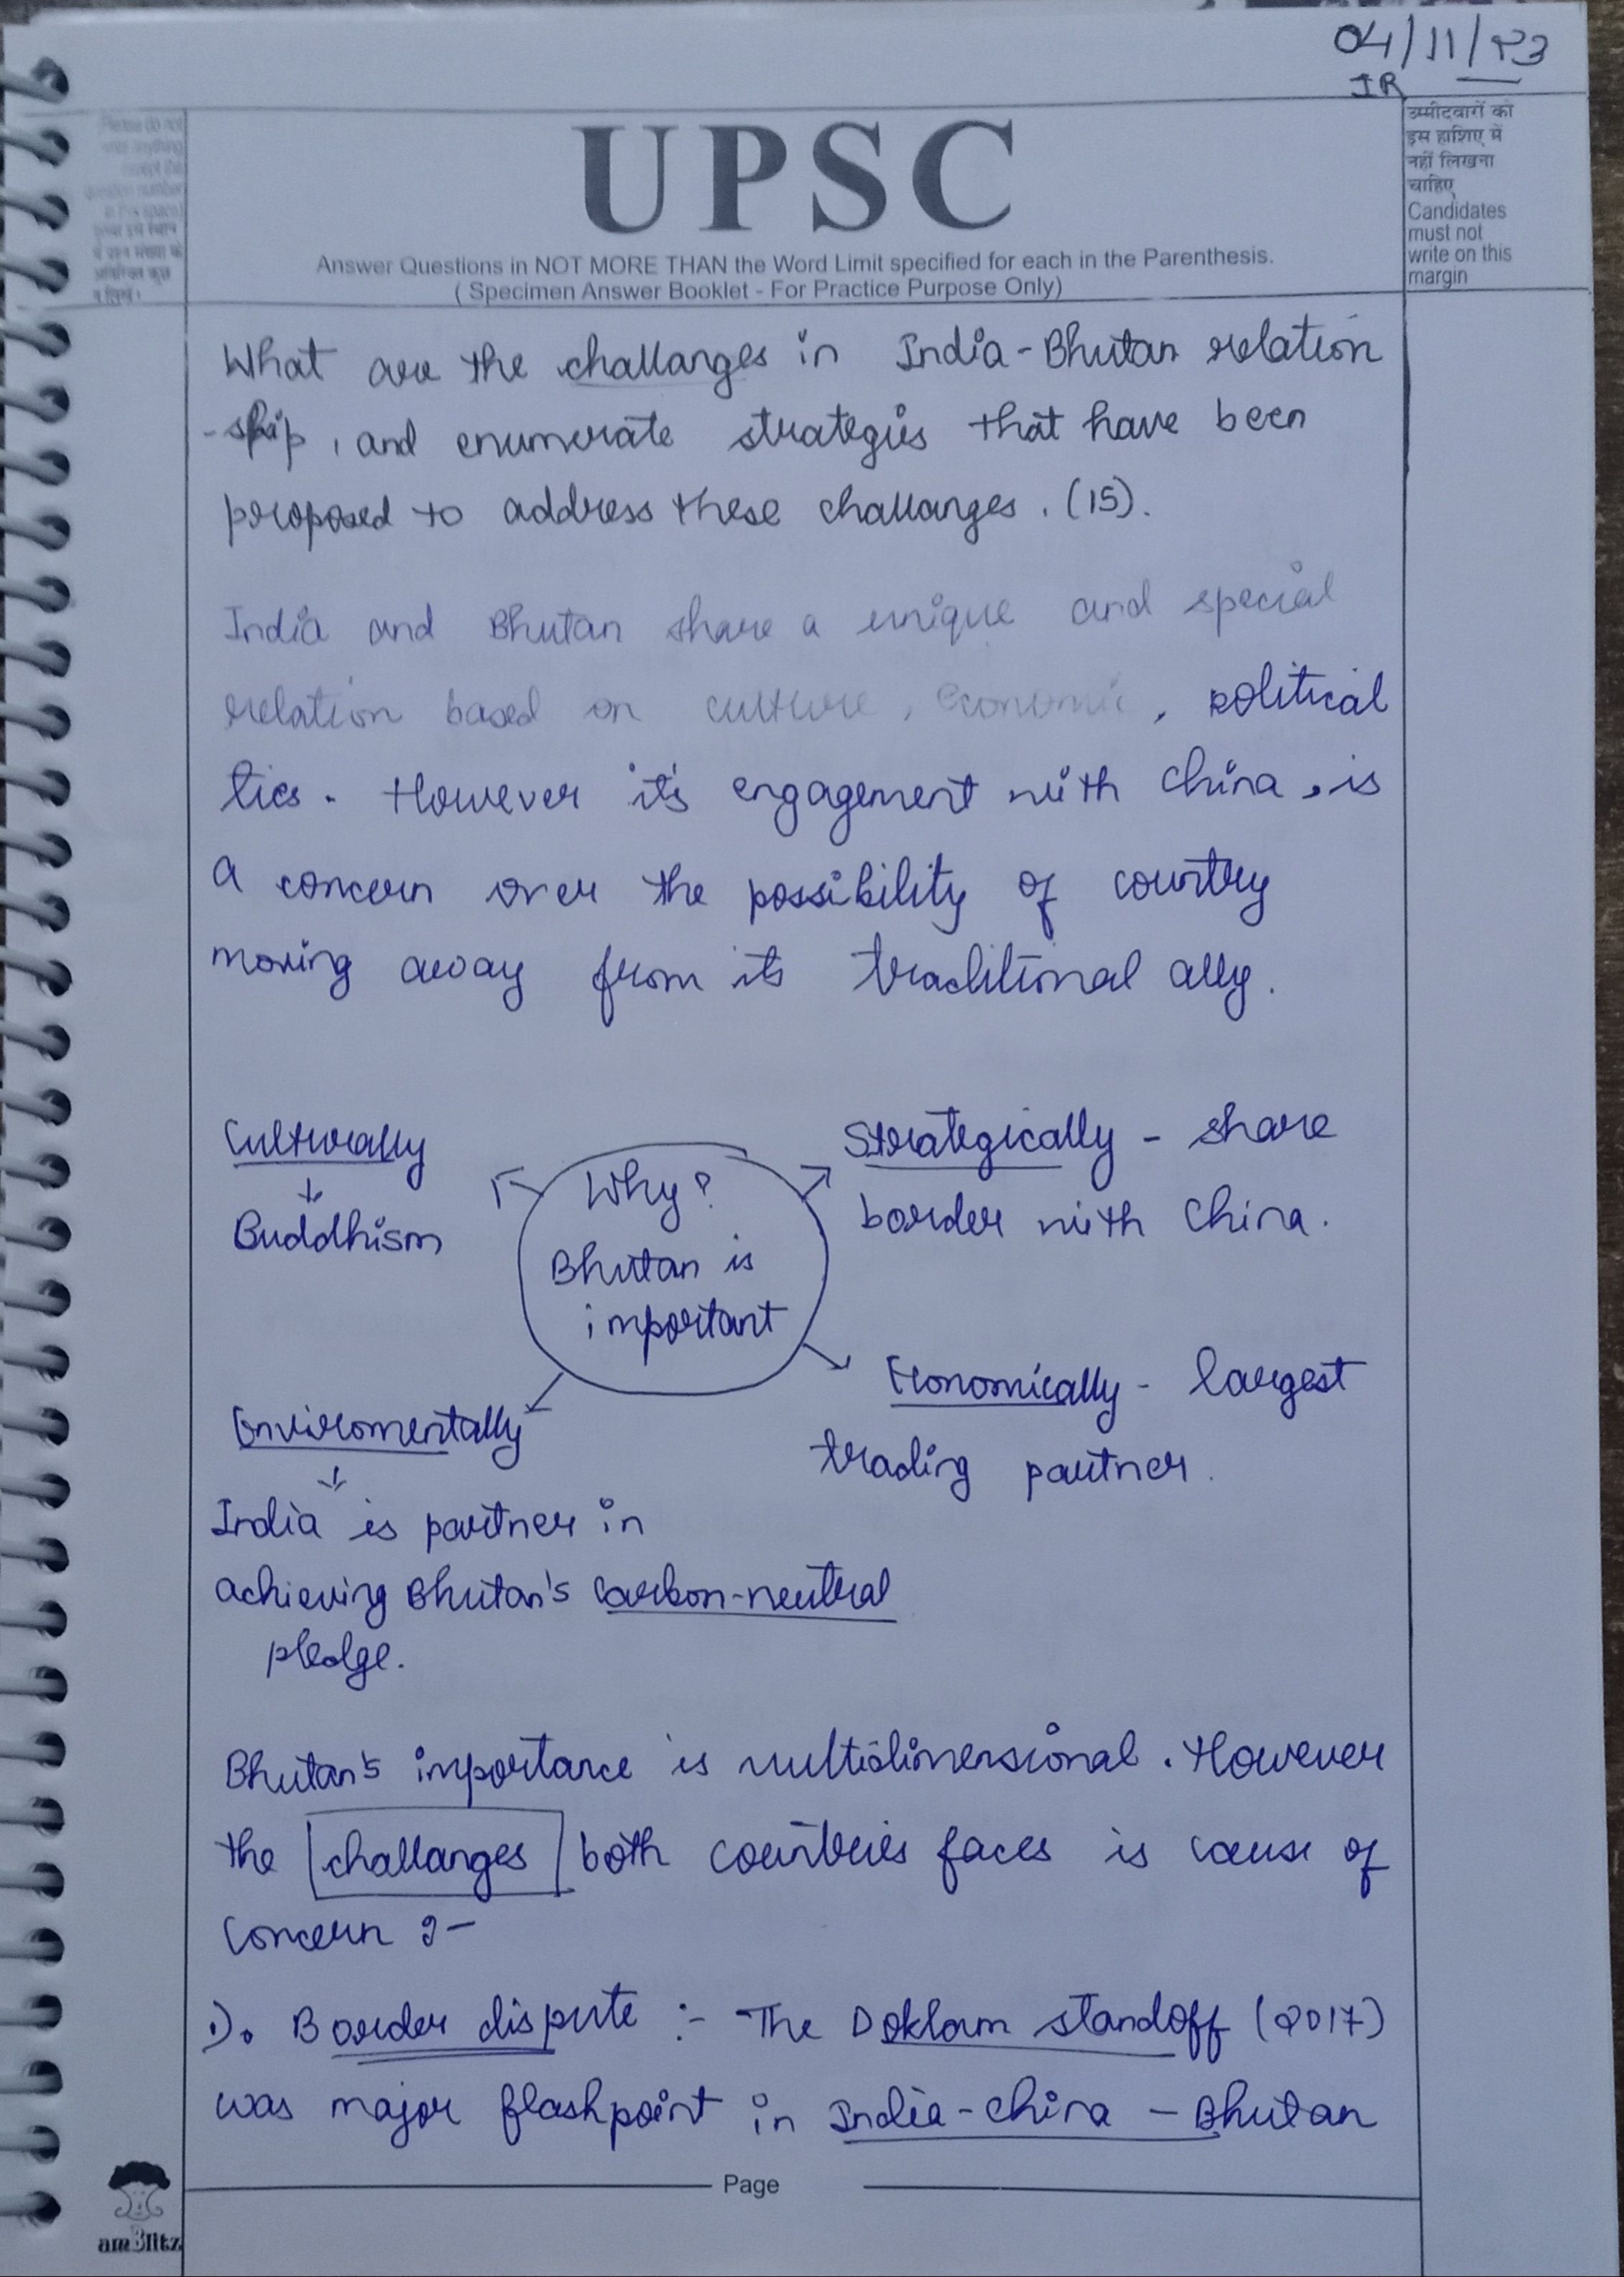 04/11/23
IR
उम्मीदवारों को
इस हाशिए में
नहीं लिखना
चाहिए
Candidates
must not
write on this
margin
Please do not
write anything
except the
question number
in this space
UPSC
Answer Questions in NOT MORE THAN the Word Limit specified for each in the Parenthesis.
( Specimen Answer Booklet - For Practice Purpose Only)
What are the challanges in India-Bhutan relation
-ship, and enumerate strategies that have been
proposed to address these challanges. (15).
India and Bhutan share a unique and special
relation based on culture, economic, political
ties. However it's engagement with China, is
a concern over the possibility of country
moving away from its traditional ally.
Culturally
↓
Buddhism
Why?
Bhutan is
important
Strategically - share
border with China.
Economically - largest
trading partner.
Enviromentally
↓
India is partner in
achieving Bhutan's carbon-neutral
pledge.
Bhutan's importance is multidimensional. However
the challanges both countries faces is cause of
concern :-
1). Border dispute :- The Doklam standoff (2017)
was major flashpoint in India-China-Bhutan
Page
amBlitz